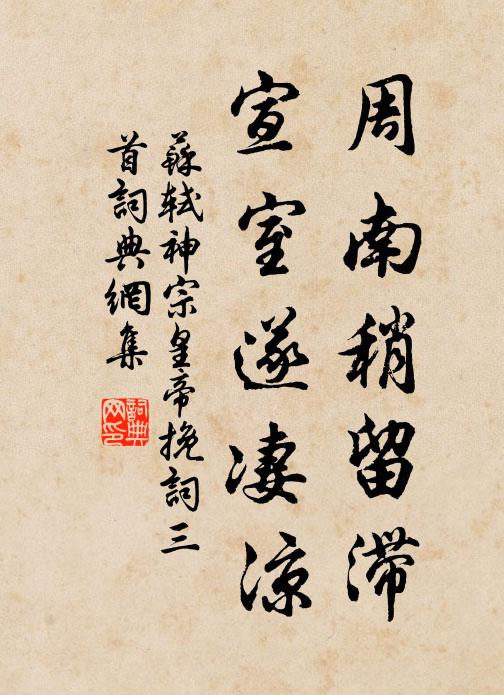 周南稍留滞
宣室遂凄凉
蘇軾神宗皇帝挽詞三
首詞典網集
詞典
网印